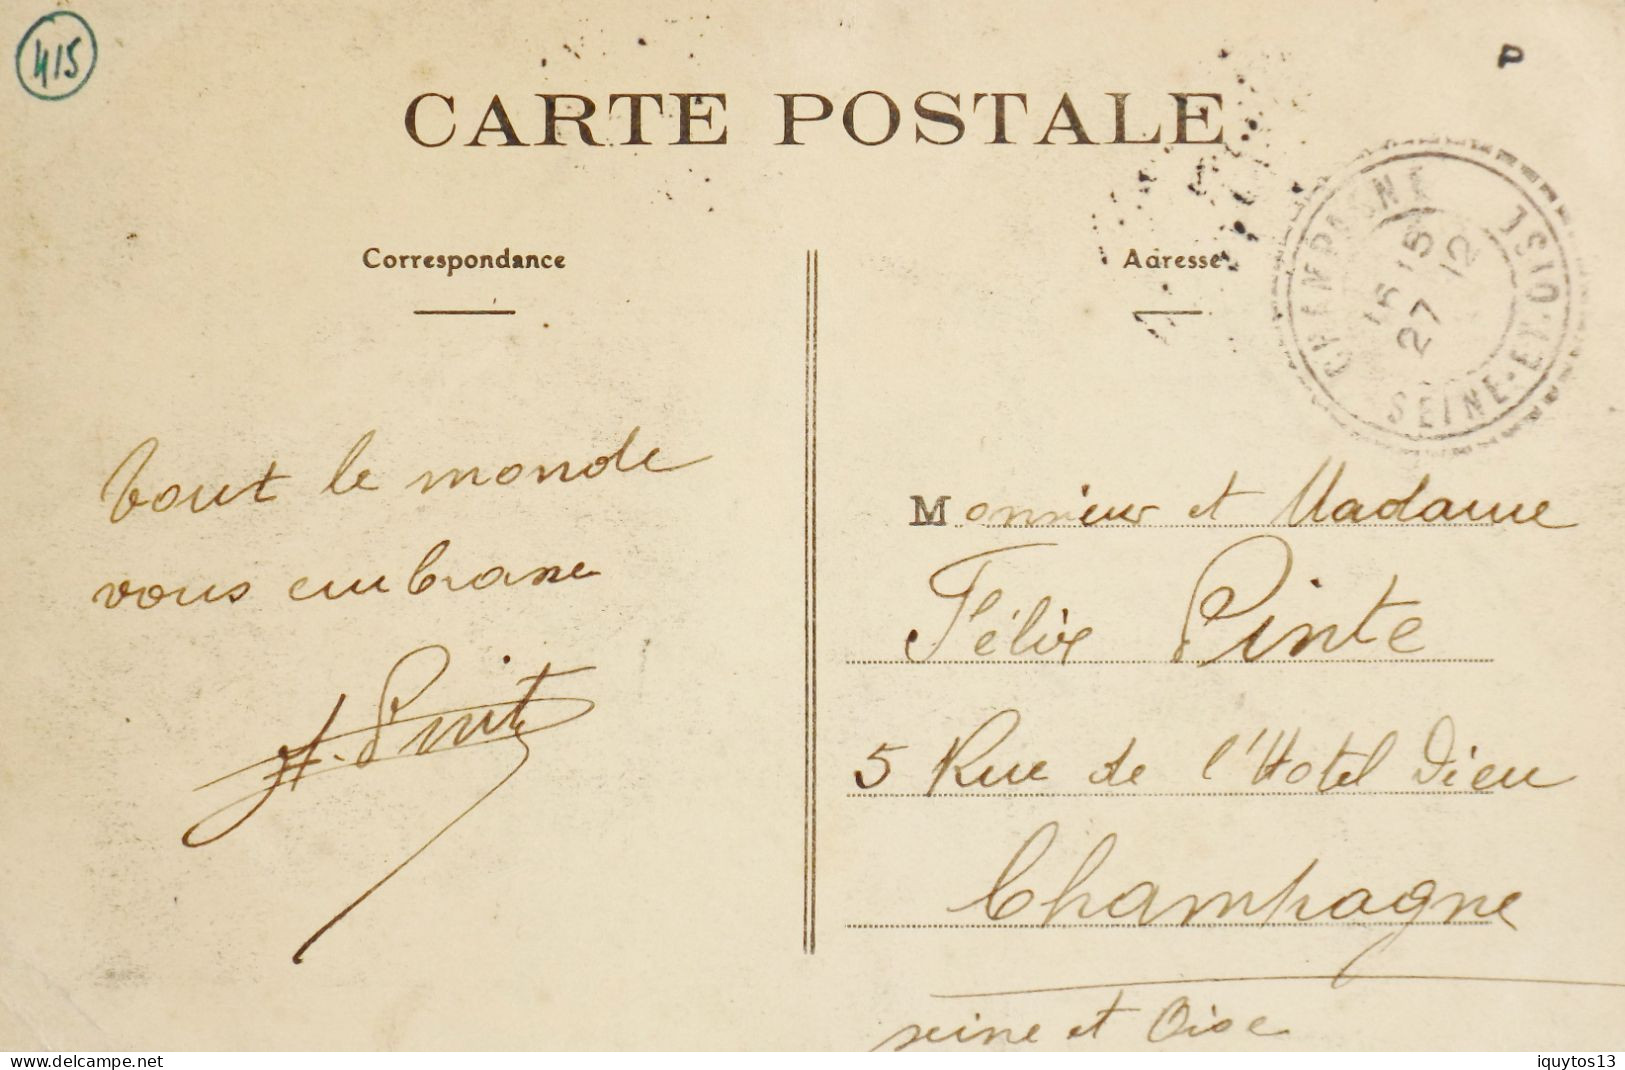 415
P
CARTE POSTALE
Correspondance
Adresse
CHAMPAGNE
15 15
27 12
SEINE-ET-OISE
tout le monde
vous embrasse
H. Pinte
Monsieur et Madame
Félix Pinte
5 Rue de l'Hotel Dieu
Champagne
seine et Oise
delcampe.net
iquytos13